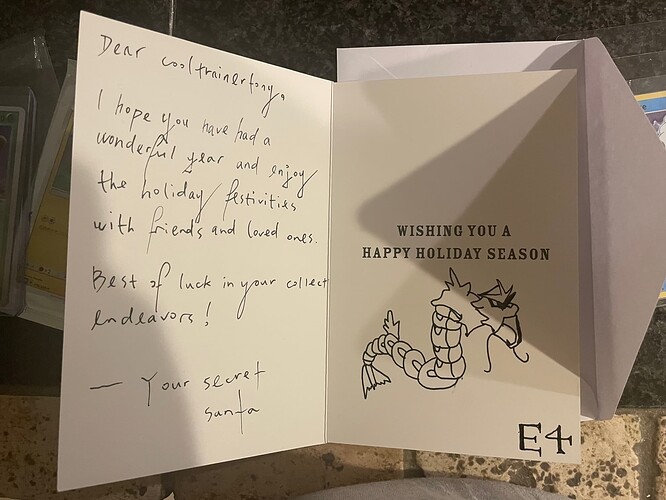 Dear cooltrainertony,
I hope you have had a
wonderful year and enjoy
the holiday festivities
with friends and loved ones.
Best of luck in your collect
endeavors!
— Your secret
santa
WISHING YOU A
HAPPY HOLIDAY SEASON
E4